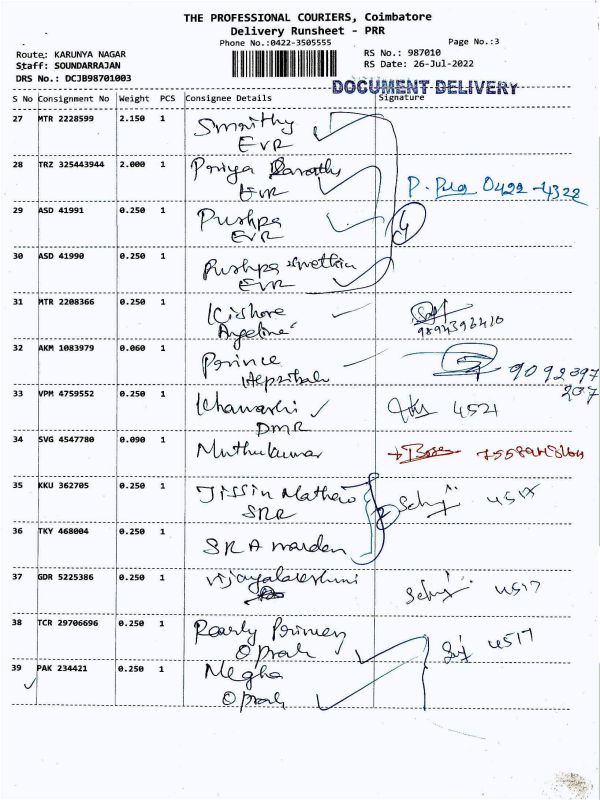 THE PROFESSIONAL COURIERS, Coimbatore
Delivery Runsheet - PRR
Phone No.:0422-3505555
Page No.:3
Route: KARUNYA NAGAR
RS No.: 987010
Staff: SOUNDARRAJAN
RS Date: 26-Jul-2022
DRS No.: DCJB98701003
DOCUMENT DELIVERY
S No Consignment No Weight PCS Consignee Details Signature
27 MTR 2228599 2.150 1
EVR
28 TRZ 325443944 2.000 1 Priya
EVR
0422-4322
29 ASD 41991 0.250 1 Pushpa
EVR
4
30 ASD 41990 0.250 1 Pushpa
EVR
31 MTR 2208366 0.250 1 Kishore
Angeline
9894396410
32 AKM 1083979 0.060 1 Prince
Hepzibah
9092397
207
33 VPM 4759552 0.250 1 4521
DMR
34 SVG 4547780 0.090 1 Muthukumar
35 KKU 362705 0.250 1 Jissin Mathew
SRR
2
4517
36 TKY 468004 0.250 1 SRA warden
37 GDR 5225386 0.250 1 Vijayalakshmi
4517
38 TCR 29706696 0.250 1 Pearly
4517
39 PAK 234421 0.250 1 Megha